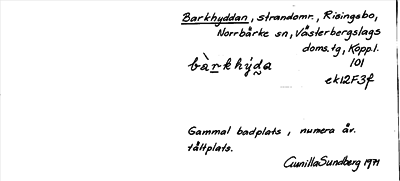 Barkhyddan, strandomr., Risingsbo,
Norrbärke sn, Västerbergslags
doms.tg, Kopp.l.
bàrkhýda 101
ek12F3f
Gammal badplats, numera äv.
tältplats.
Gunilla Sundberg 1971